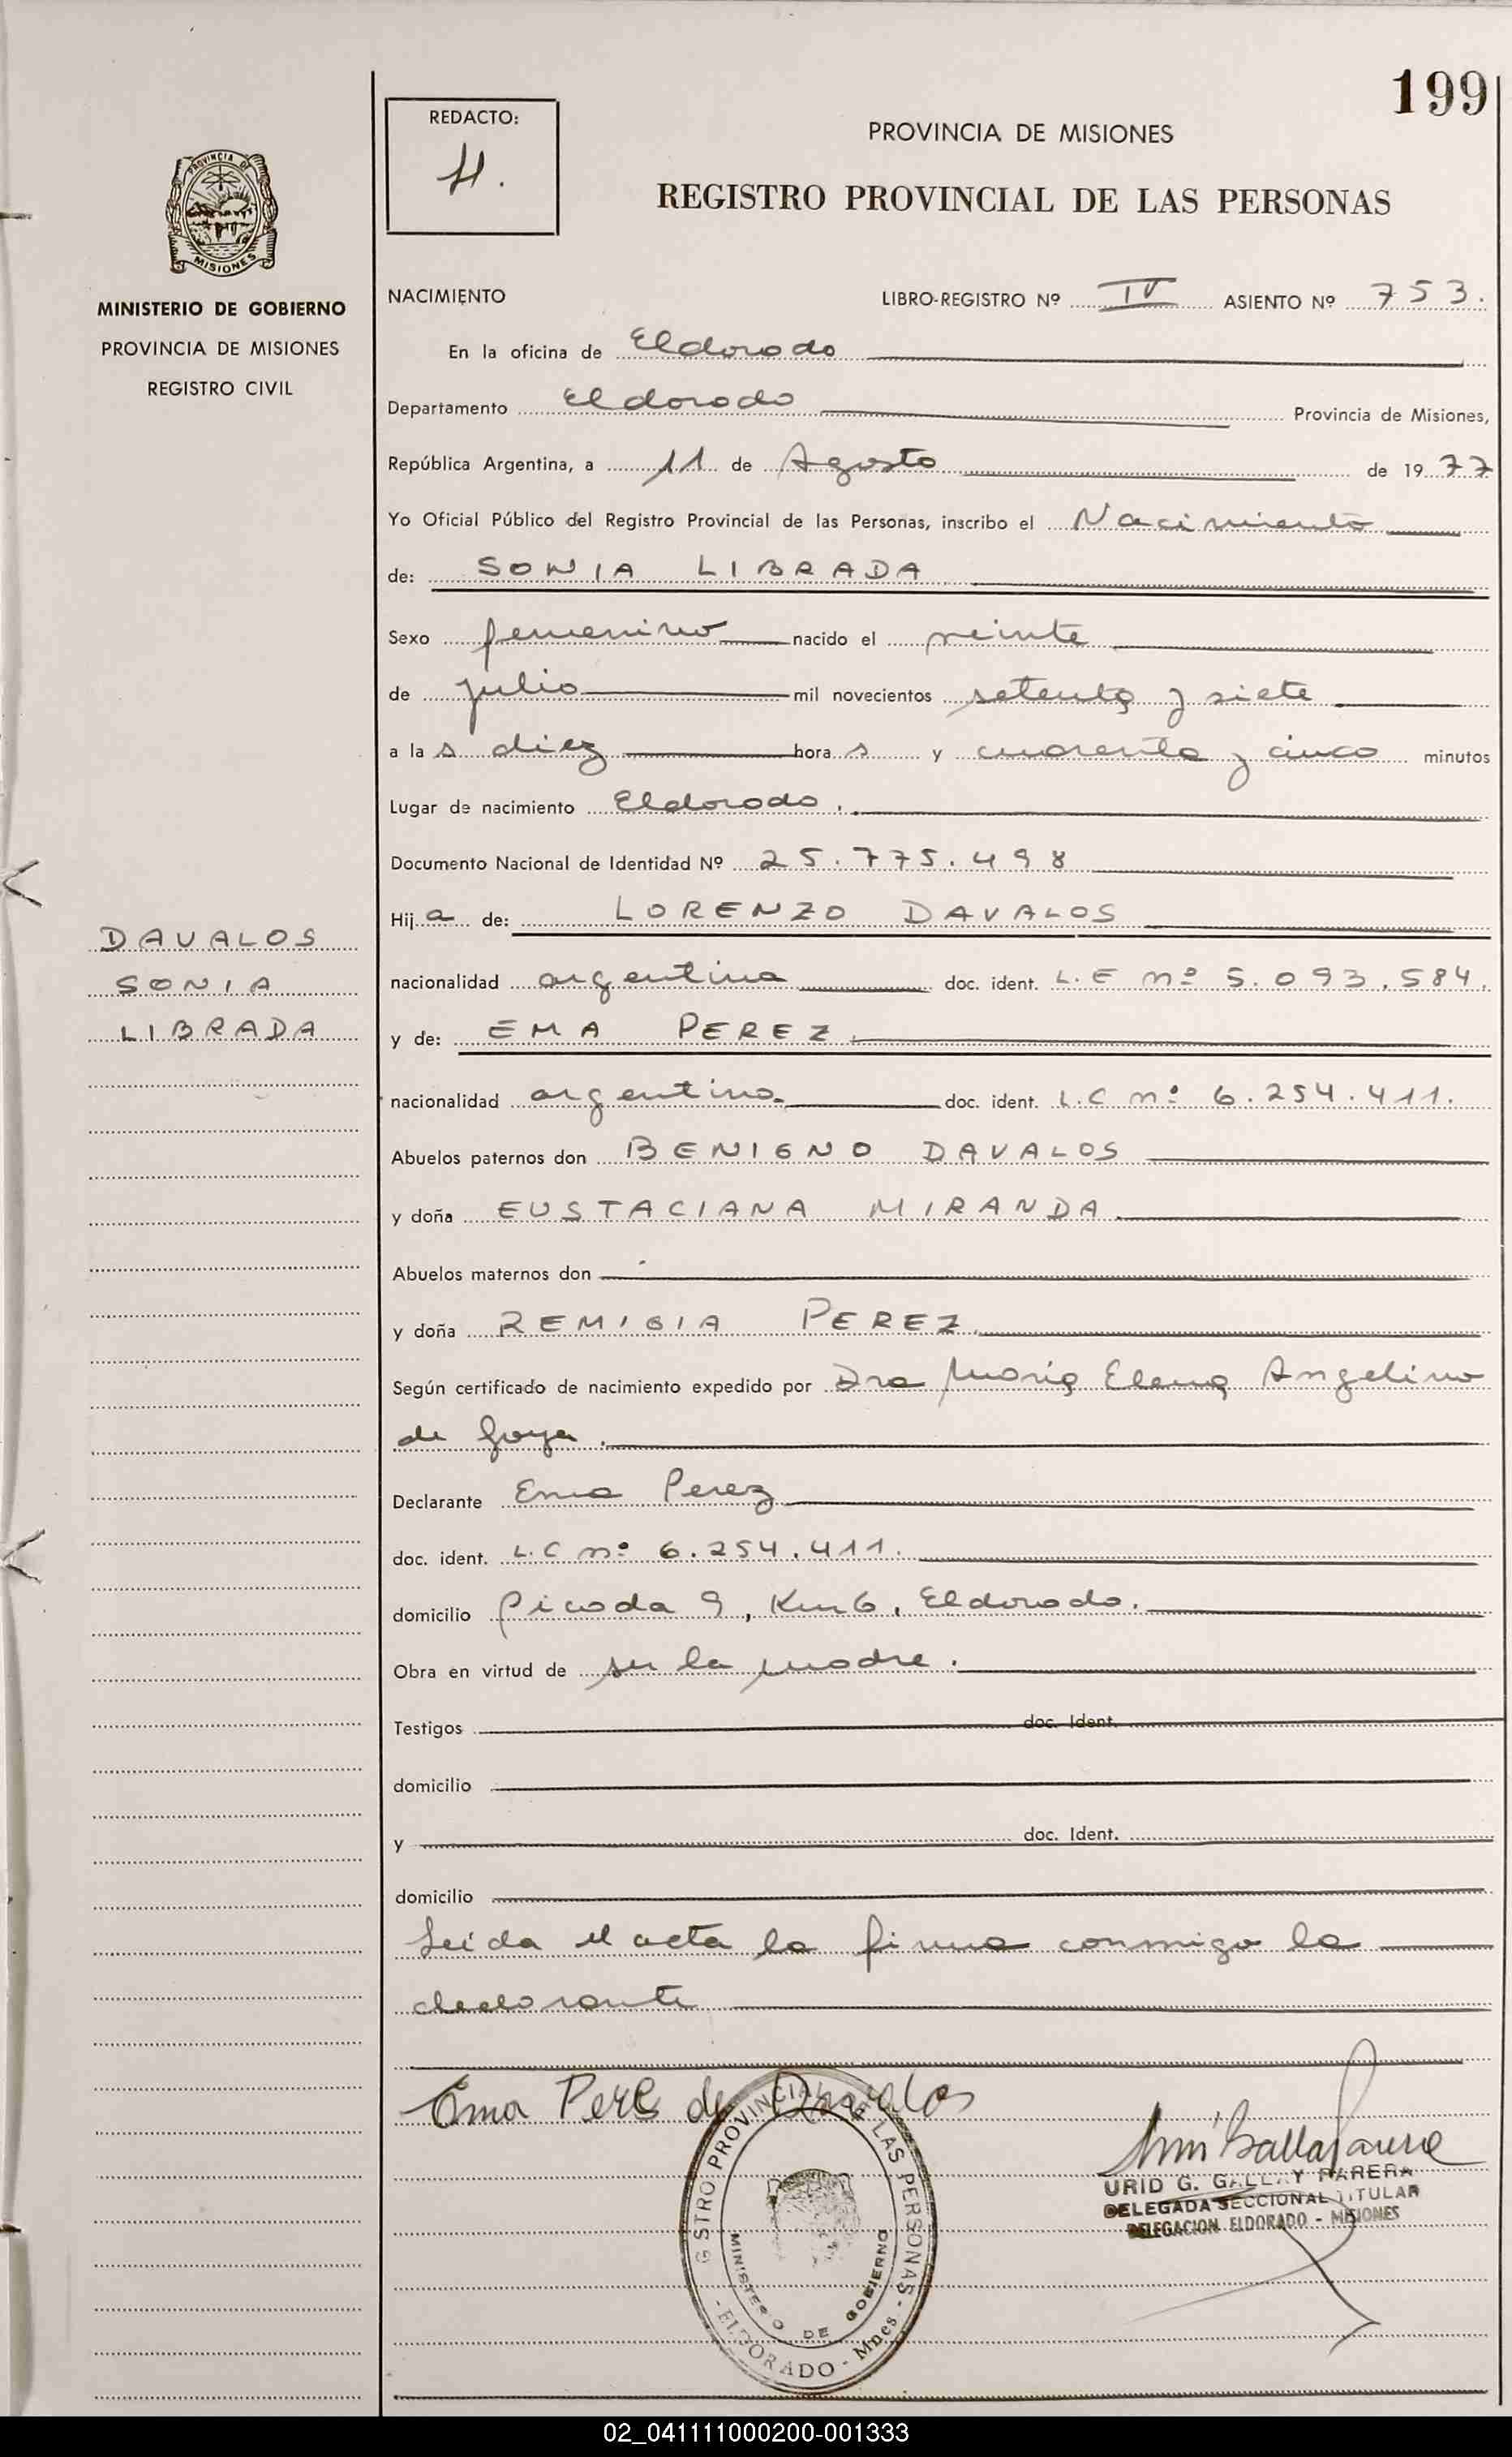 199
REDACTO:
H.
PROVINCIA DE MISIONES
REGISTRO PROVINCIAL DE LAS PERSONAS
PROVINCIA DE
MISIONES
MINISTERIO DE GOBIERNO
PROVINCIA DE MISIONES
REGISTRO CIVIL
NACIMIENTO LIBRO-REGISTRO Nº IV ASIENTO Nº 753.
En la oficina de Eldorado
Departamento Eldorado Provincia de Misiones,
República Argentina, a 11 de Agosto de 1977
Yo Oficial Público del Registro Provincial de las Personas, inscribo el Nacimiento
de: SONIA LIBRADA
Sexo femenino nacido el veinte
de julio mil novecientos setenta y siete
a las diez horas y cuarenta y cinco minutos
Lugar de nacimiento Eldorado.
Documento Nacional de Identidad Nº 25.775.498
Hija de: LORENZO DAVALOS
DAVALOS
SONIA
LIBRADA
nacionalidad argentina doc. ident. L.E nº 5.093.584.
y de: EMA PEREZ
nacionalidad argentina doc. ident. L.C nº 6.254.411.
Abuelos paternos don BENIGNO DAVALOS
y doña EUSTACIANA MIRANDA
Abuelos maternos don
y doña REMIGIA PEREZ
Según certificado de nacimiento expedido por Dra María Elena Angelino
de Goya.
Declarante Ema Perez
doc. ident. L.C nº 6.254.411.
domicilio Picada 9, Km 6, Eldorado.
Obra en virtud de ser la madre.
Testigos doc. Ident.
domicilio
y doc. Ident.
domicilio
Leida el acta la firma conmigo la
declarante
Ema Perez de Davalos
GSTRO PROVINCIAL DE LAS PERSONAS
MINISTERIO DE GOBIERNO
- ELDORADO - Mnes -
URID G. GALLAY PARERA
DELEGADA SECCIONAL TITULAR
DELEGACION ELDORADO - MISIONES
02_041111000200-001333